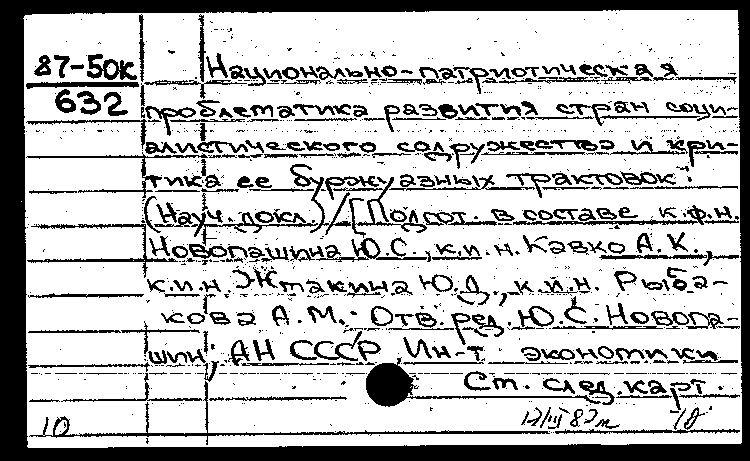 87-50к
632
Национально-патриотическая
проблематика развития стран соци-
алистического содружества и кри-
тика ее буржуазных трактовок:
(Науч. докл.) / [Подгот. в составе к.ф.н.
Новопашина Ю.С., к.и.н. Кавко А.К.,
к.и.н. Жтакина Ю.Д., к.и.н. Рыба-
кова А.М.; Отв. ред. Ю.С. Новопа-
шин; АН СССР, Ин-т экономики
Ст. след. карт.
10